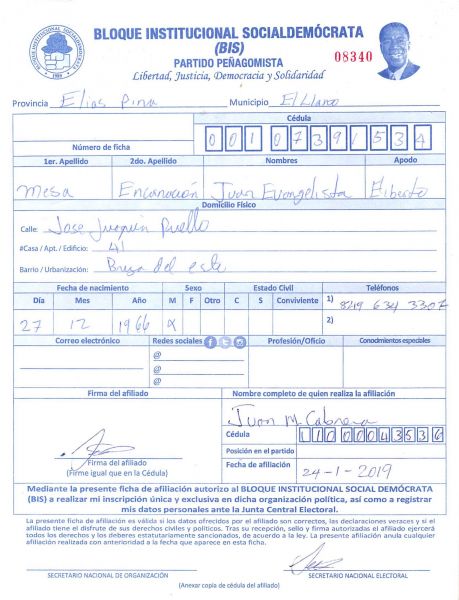 BLOQUE INSTITUCIONAL SOCIALDEMÓCRATA
BLOQUE INSTITUCIONAL SOCIALDEMÓCRATA
(BIS)
PARTIDO PEÑAGOMISTA
Libertad, Justicia, Democracia y Solidaridad
08340
Provincia Elias Pina Municipio El Llano
Cédula
Número de ficha 0010739153 4
1er. Apellido 2do. Apellido Nombres Apodo
Mesa Encarnación Juan Evangelista Eliberto
Domicilio Físico
Calle: Jose Juaquin Puello
#Casa / Apt. / Edificio: 41
Barrio / Urbanización: Brisa del este
Fecha de nacimiento Sexo Estado Civil Teléfonos
Día Mes Año M F Otro C S Conviviente 1) 829 634 3307
27 12 1966 X 2)
Correo electrónico Redes sociales Profesión/Oficio Conodmientos especiales
@
@
@
Firma del afiliado Nombre completo de quien realiza la afiliación
Juan M. Cabrera
Cédula 11000043536
Posición en el partido
Firma del afiliado
(Firme igual que en la Cédula)
Fecha de afiliación 24-1-2019
Mediante la presente ficha de afiliación autorizo al BLOQUE INSTITUCIONAL SOCIAL DEMÓCRATA
(BIS) a realizar mi inscripción única y exclusiva en dicha organización política, así como a registrar
mis datos personales ante la Junta Central Electoral.
La presente ficha de afiliación es válida si los datos ofrecidos por el afiliado son correctos, las declaraciones veraces y si el
afiliado tiene el disfrute de sus derechos civiles y políticos. Tras su recepción, sello y firma autorizadas el afiliado ejercerá
todos los derechos y los deberes estatutariamente sancionados, de acuerdo a la ley. La presente afiliación anula cualquier
afiliación realizada con anterioridad a la fecha que aparece en esta ficha.
SECRETARIO NACIONAL DE ORGANIZACIÓN SECRETARIO NACIONAL ELECTORAL
(Anexar copia de cédula del afiliado)